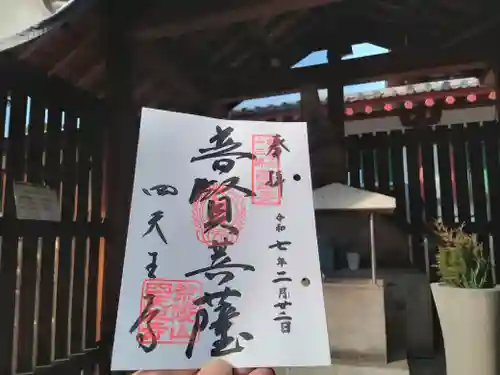 奉拝
令和七年二月廿二日
普賢菩薩
四天王寺